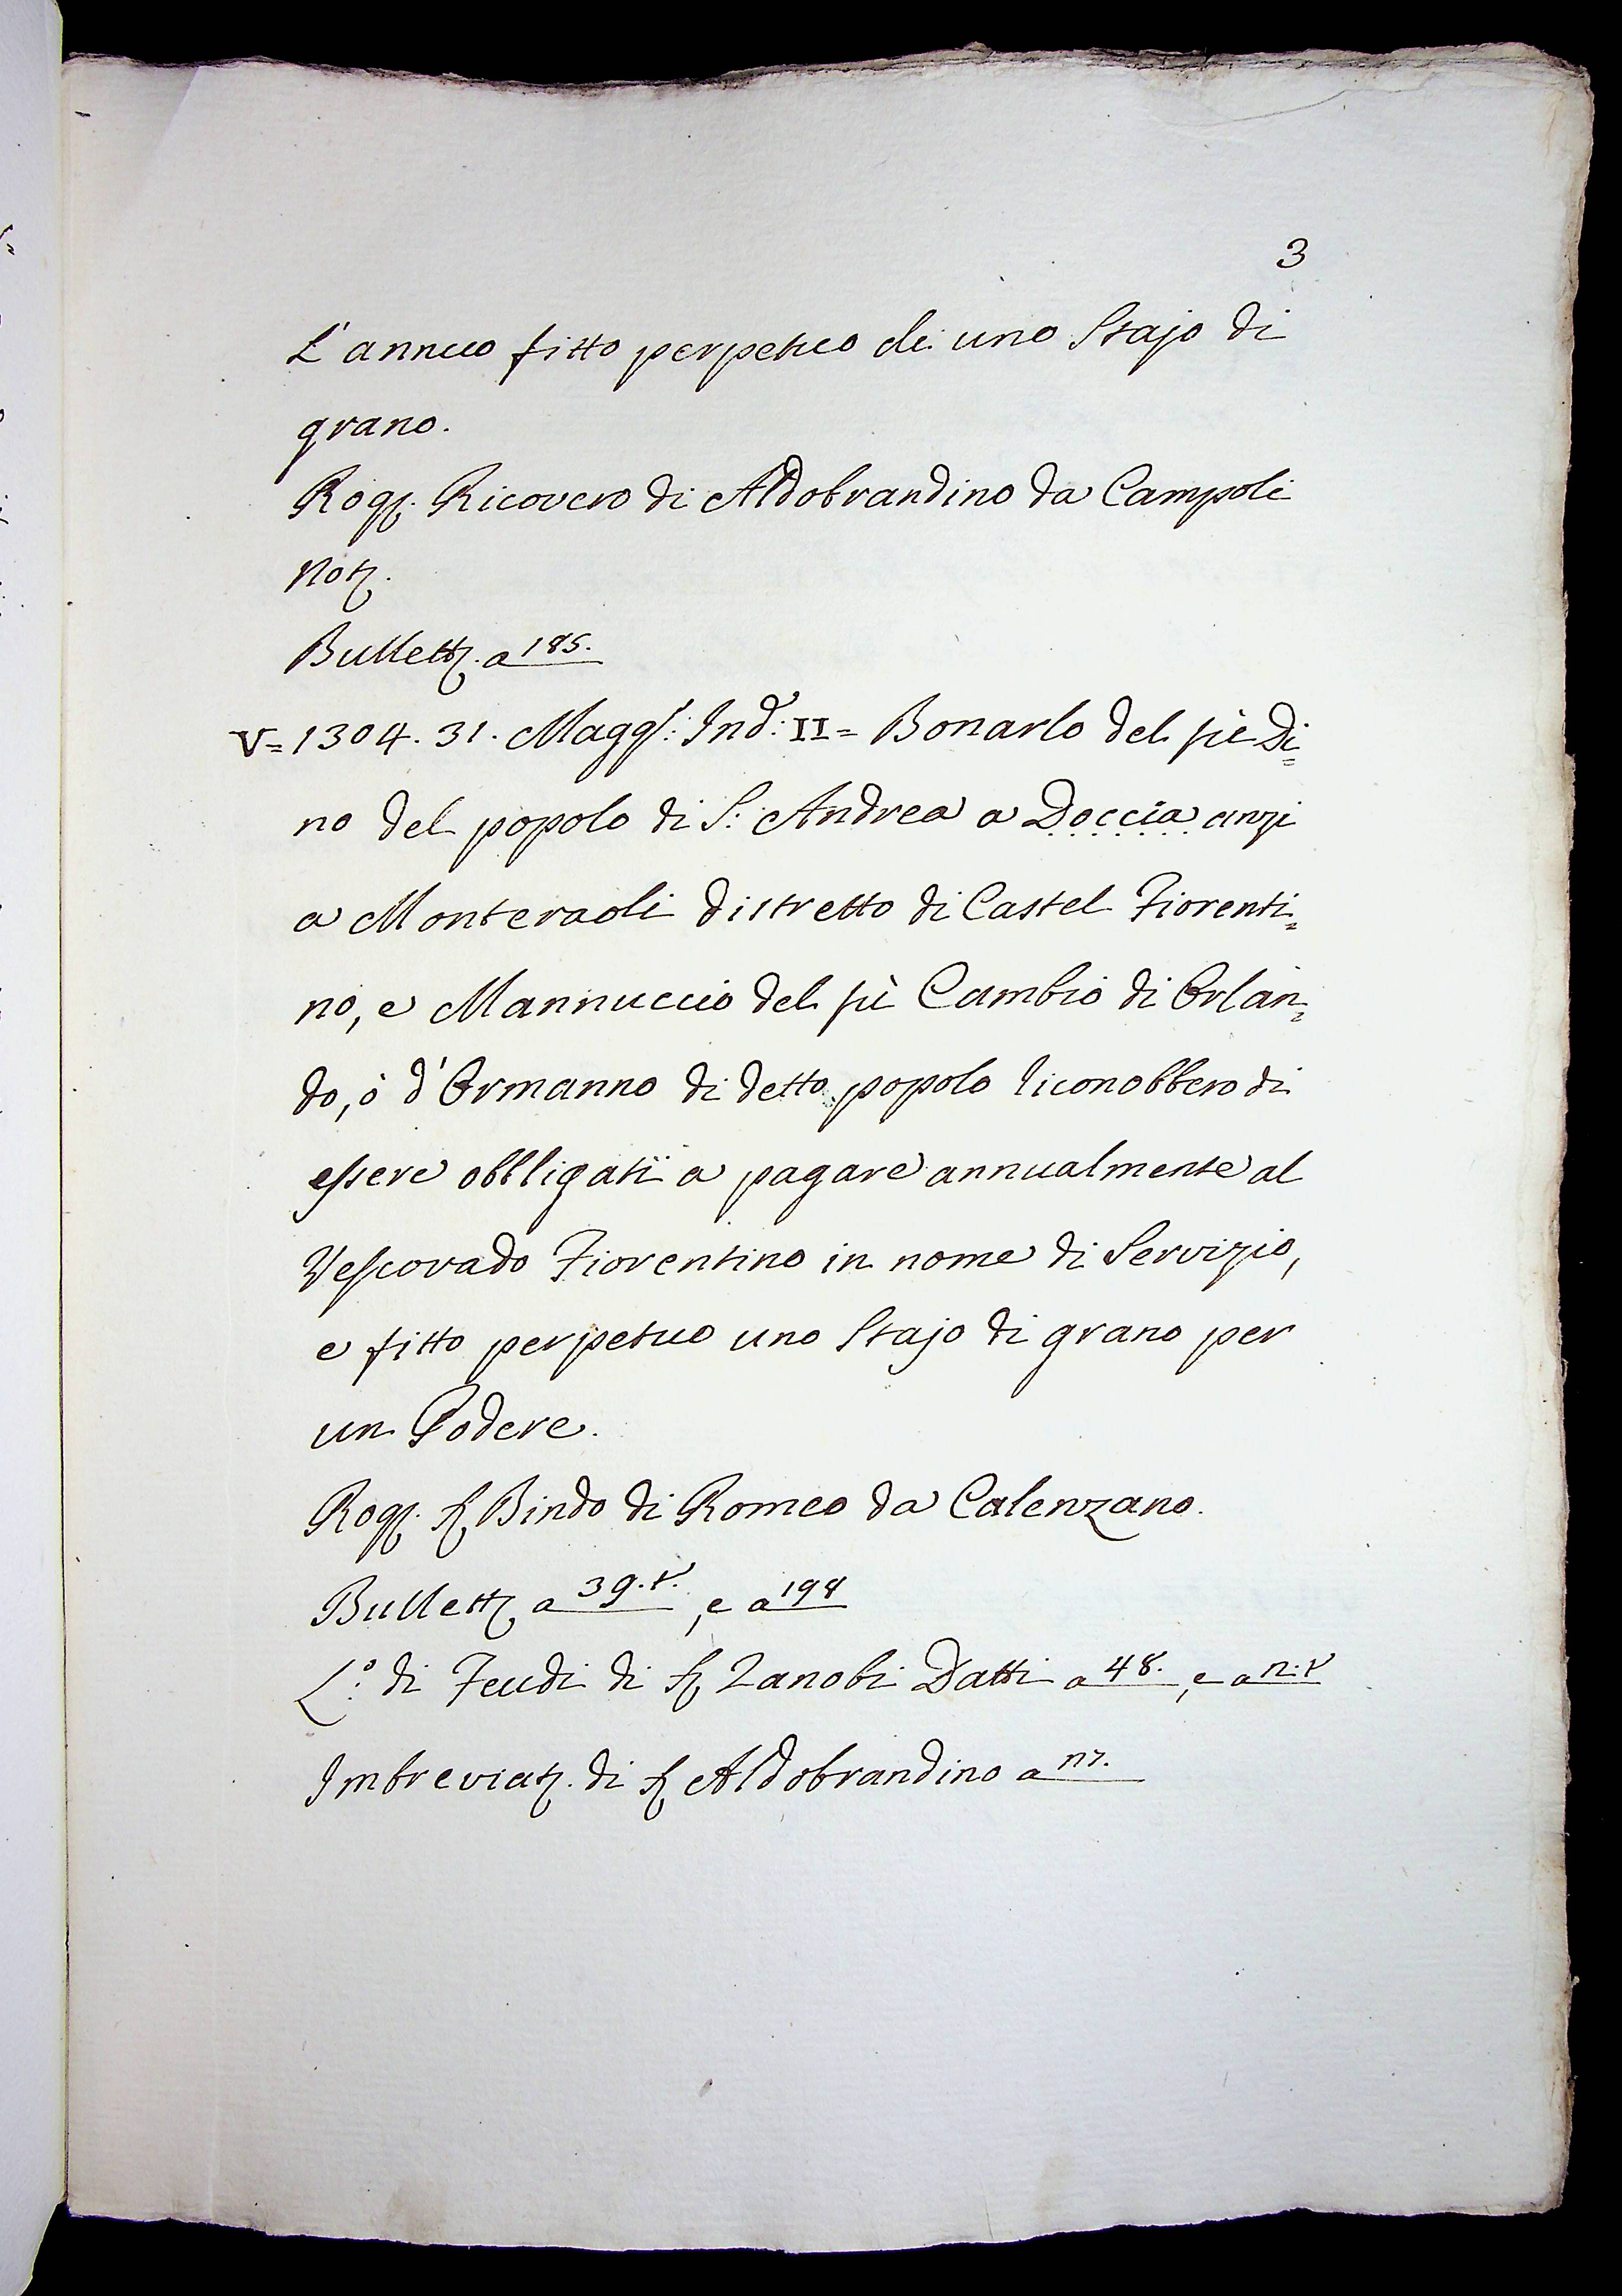 3
L'annuo fitto perpetuo di uno Stajo di
grano.
Rog. Ricovero di Aldobrandino da Campoli
Not.
Bullett. a 185.
V= 1304. 31. Magg: Ind: II= Bonarlo del fù Di=
no del popolo di S: Andrea a Doccia anzi
a Monteraoli distretto di Castel Fiorenti=
no, e Mannuccio del fù Cambio di Orlan=
do, ò d'Ormanno di detto popolo riconobbero di
essere obbligati a pagare annualmente al
Vescovado Fiorentino in nome di Servizio,
e fitto perpetuo uno Stajo di grano per
un Podere.
Rog. S. Bindo di Romeo da Calenzano.
Bullett. a 39.t., e a 198
L.º di Feudi di S. Zanobi Datti a 48., e a
Imbreviat. di S. Aldobrandino a